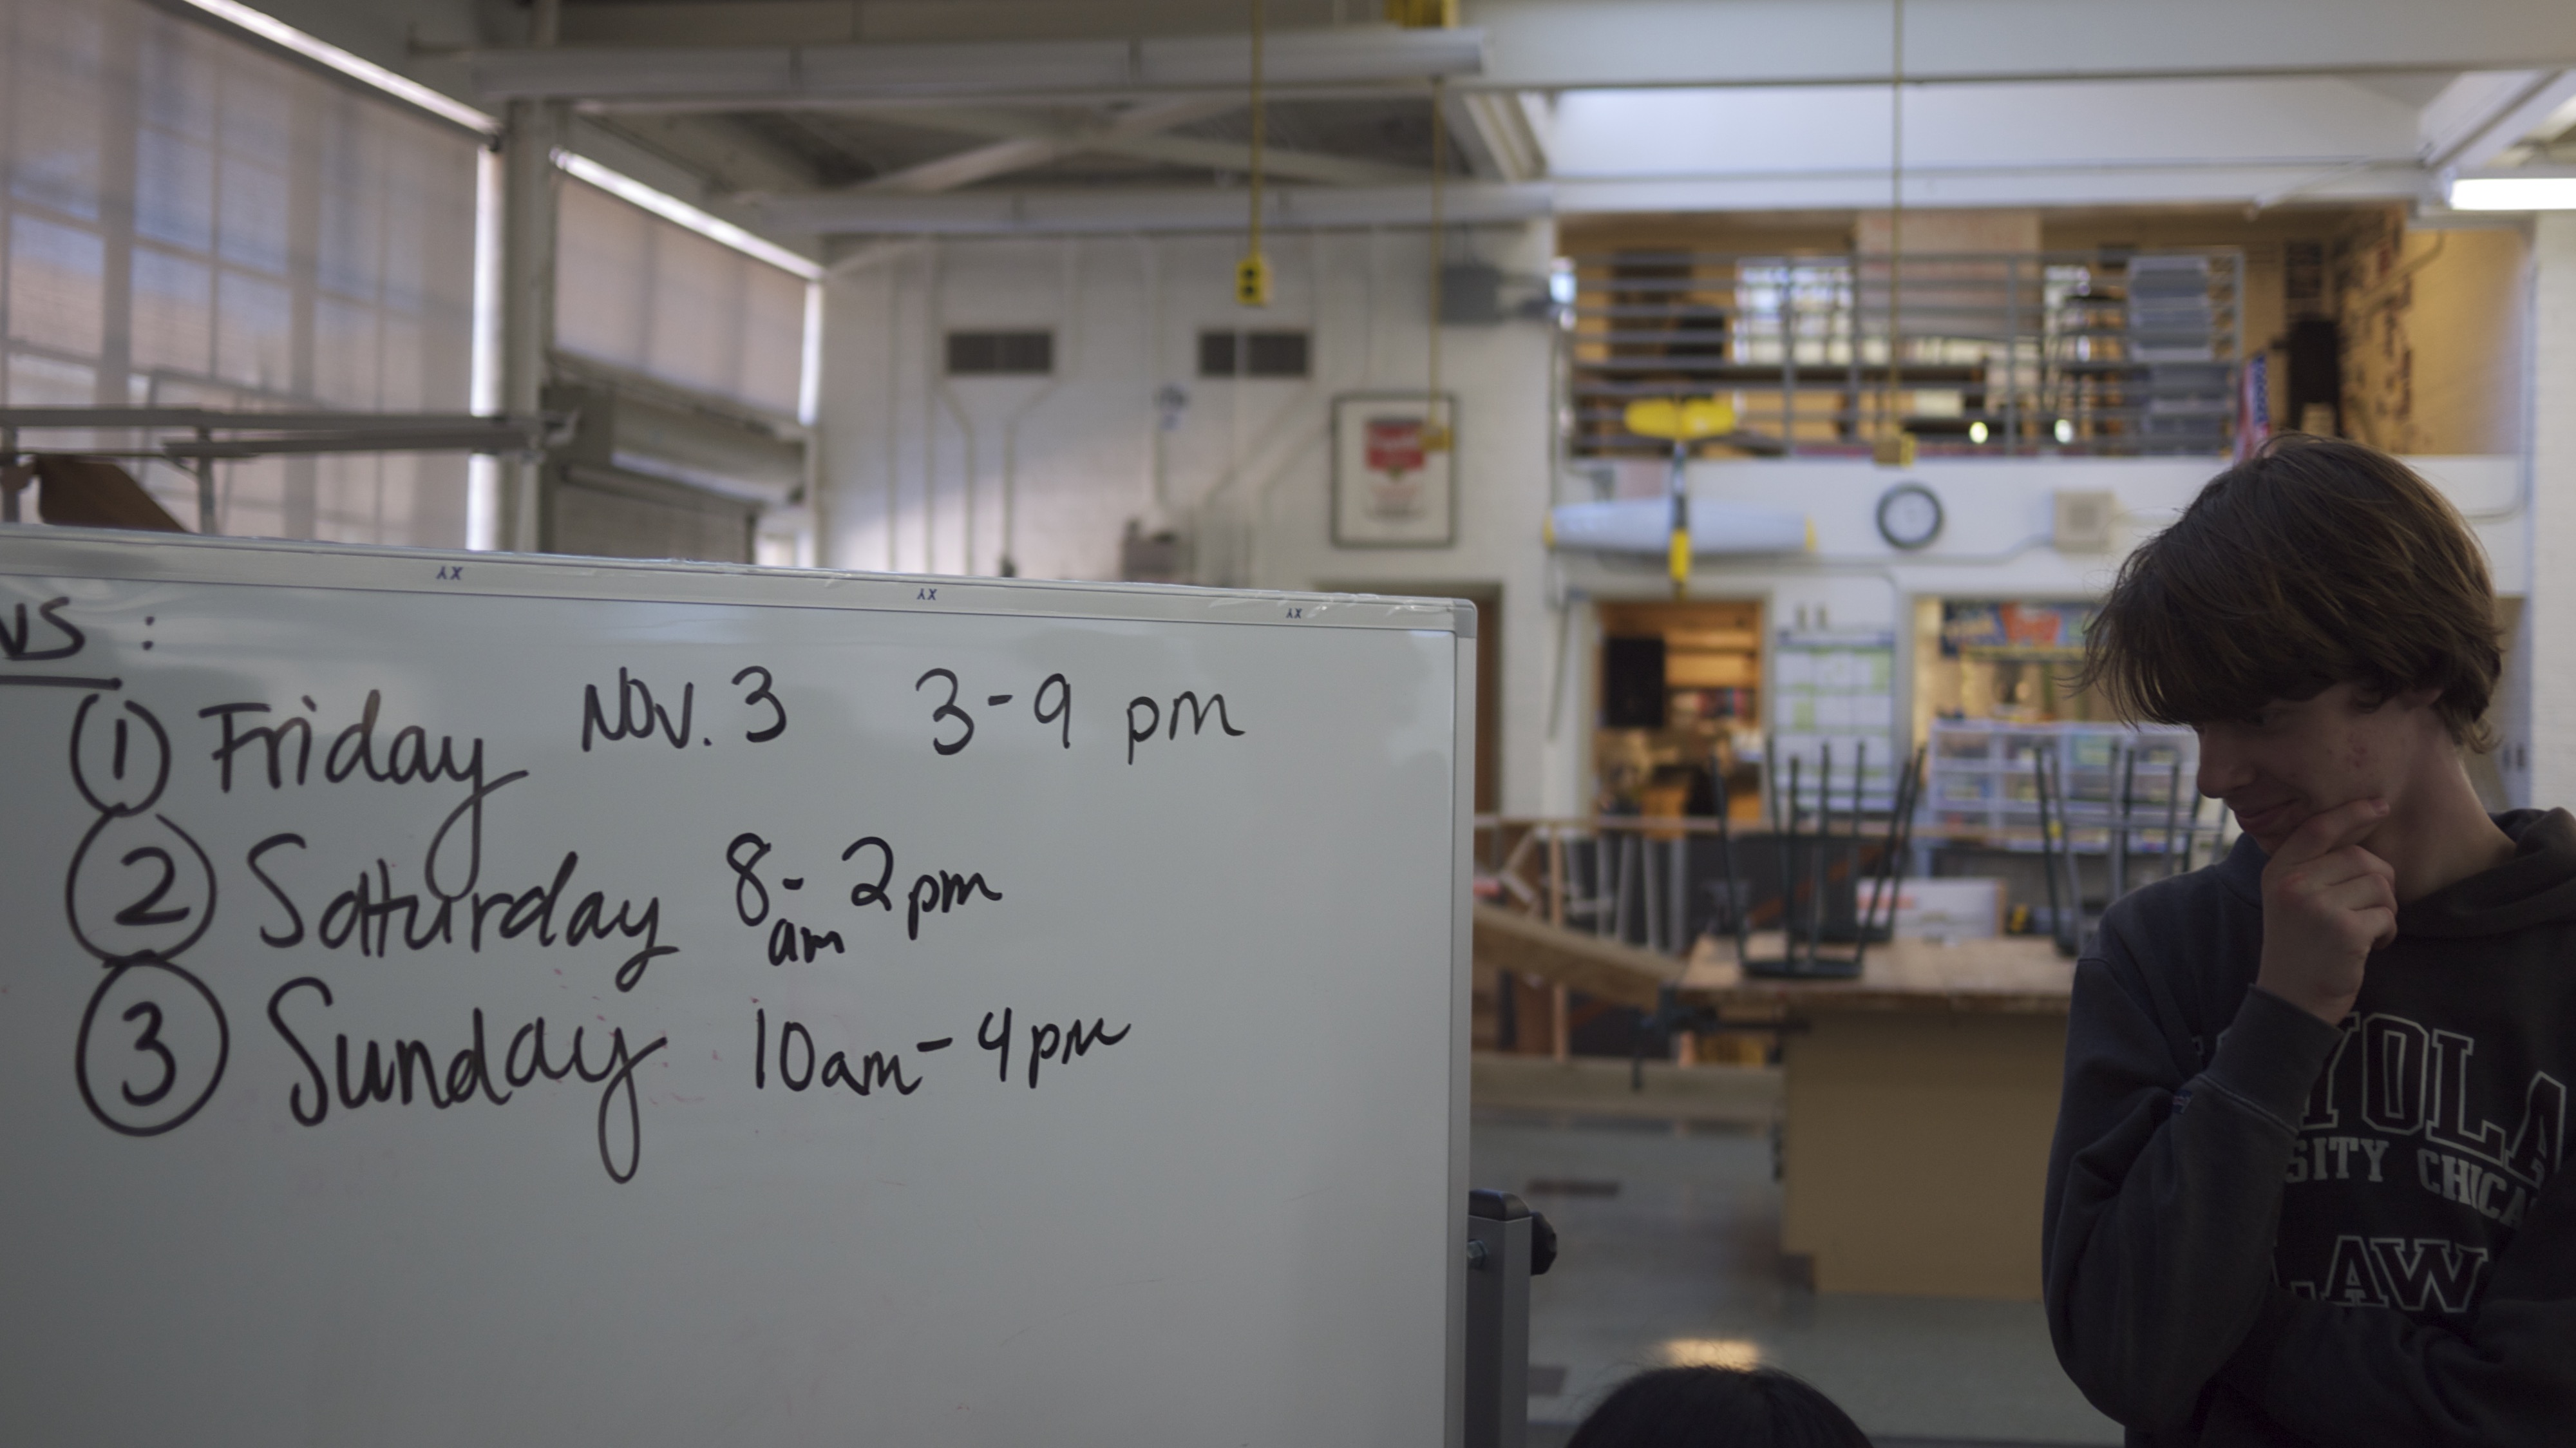 NS :
① Friday Nov. 3 3-9 pm
② Satturday 8am - 2pm
③ Sunday 10am - 4pm
XY
XY
XY
YOLA
SITY CHICA
LAW